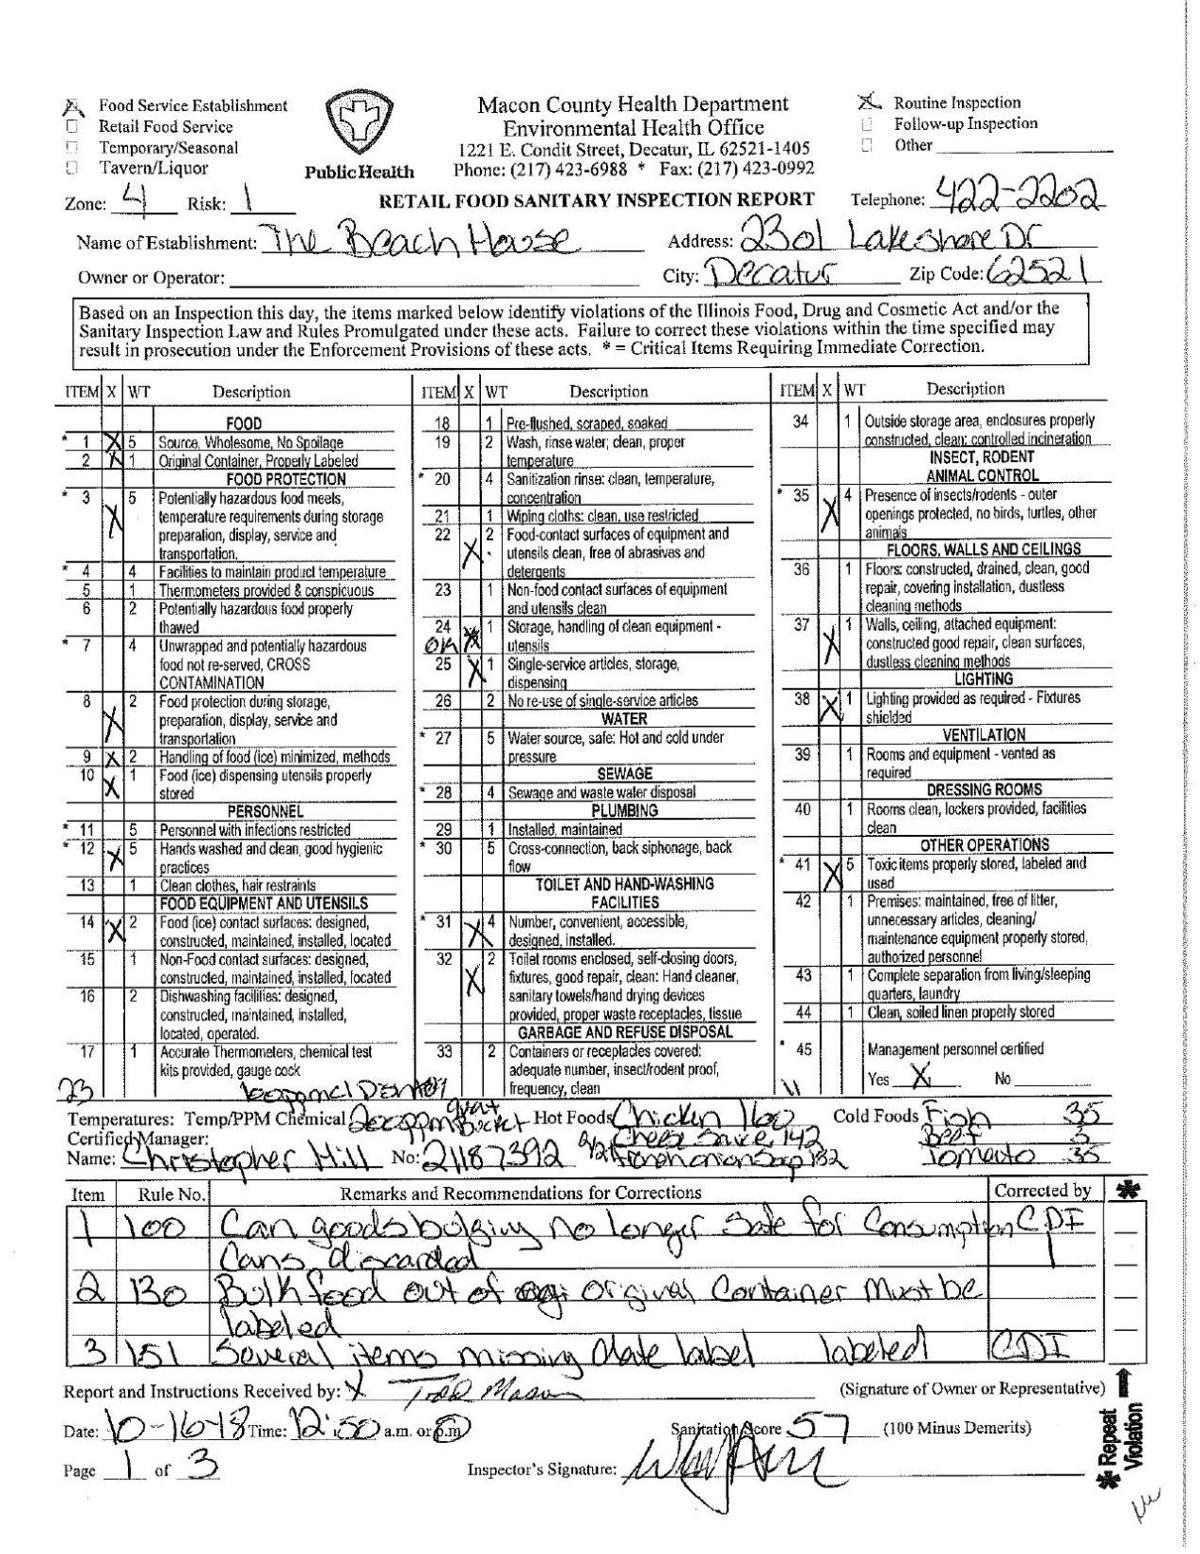 Food Service Establishment
Retail Food Service
Temporary/Seasonal
Tavern/Liquor
Public Health
Macon County Health Department
Environmental Health Office
1221 E. Condit Street, Decatur, IL 62521-1405
Phone: (217) 423-6988 * Fax: (217) 423-0992
X Routine Inspection
Follow-up Inspection
Other
Zone: 4 Risk: 1
RETAIL FOOD SANITARY INSPECTION REPORT
Telephone: 422-2202
Name of Establishment: The Beach House
Address: 2301 Lakeshore Dr
Owner or Operator:
City: Decatur Zip Code: 62521
Based on an Inspection this day, the items marked below identify violations of the Illinois Food, Drug and Cosmetic Act and/or the
Sanitary Inspection Law and Rules Promulgated under these acts. Failure to correct these violations within the time specified may
result in prosecution under the Enforcement Provisions of these acts. * = Critical Items Requiring Immediate Correction.
ITEM X WT Description
FOOD
* 1 X 5 Source, Wholesome, No Spoilage
2 X 1 Original Container, Properly Labeled
FOOD PROTECTION
* 3 X 5 Potentially hazardous food meets,
temperature requirements during storage
preparation, display, service and
transportation.
* 4 4 Facilities to maintain product temperature
5 1 Thermometers provided & conspicuous
6 2 Potentially hazardous food properly
thawed
* 7 4 Unwrapped and potentially hazardous
food not re-served, CROSS
CONTAMINATION
8 X 2 Food protection during storage,
preparation, display, service and
transportation
9 X 2 Handling of food (ice) minimized, methods
10 X 1 Food (ice) dispensing utensils properly
stored
PERSONNEL
* 11 5 Personnel with infections restricted
* 12 X 5 Hands washed and clean, good hygienic
practices
13 1 Clean clothes, hair restraints
FOOD EQUIPMENT AND UTENSILS
14 X 2 Food (ice) contact surfaces: designed,
constructed, maintained, installed, located
15 1 Non-Food contact surfaces: designed,
constructed, maintained, installed, located
16 2 Dishwashing facilities: designed,
constructed, maintained, installed,
located, operated.
17 1 Accurate Thermometers, chemical test
kits provided, gauge cock
23
ITEM X WT Description
18 1 Pre-flushed, scraped, soaked
19 2 Wash, rinse water; clean, proper
temperature
* 20 4 Sanitization rinse: clean, temperature,
concentration
21 1 Wiping cloths: clean, use restricted
22 X 2 Food-contact surfaces of equipment and
utensils clean, free of abrasives and
detergents
23 1 Non-food contact surfaces of equipment
and utensils clean
24 X 1 Storage, handling of clean equipment -
OK utensils
25 X 1 Single-service articles, storage,
dispensing
26 2 No re-use of single-service articles
WATER
* 27 5 Water source, safe: Hot and cold under
pressure
SEWAGE
* 28 4 Sewage and waste water disposal
PLUMBING
29 1 Installed, maintained
* 30 5 Cross-connection, back siphonage, back
flow
TOILET AND HAND-WASHING
FACILITIES
* 31 X 4 Number, convenient, accessible,
designed, installed.
32 X 2 Toilet rooms enclosed, self-closing doors,
fixtures, good repair, clean: Hand cleaner,
sanitary towels/hand drying devices
provided, proper waste receptacles, tissue
GARBAGE AND REFUSE DISPOSAL
33 2 Containers or receptacles covered:
adequate number, insect/rodent proof,
frequency, clean
ITEM X WT Description
34 1 Outside storage area, enclosures properly
constructed, clean: controlled incineration
INSECT, RODENT
ANIMAL CONTROL
* 35 X 4 Presence of insects/rodents - outer
openings protected, no birds, turtles, other
animals
FLOORS, WALLS AND CEILINGS
36 1 Floors: constructed, drained, clean, good
repair, covering installation, dustless
cleaning methods
37 X 1 Walls, ceiling, attached equipment:
constructed good repair, clean surfaces,
dustless cleaning methods
LIGHTING
38 X 1 Lighting provided as required - Fixtures
shielded
VENTILATION
39 1 Rooms and equipment - vented as
required
DRESSING ROOMS
40 1 Rooms clean, lockers provided, facilities
clean
OTHER OPERATIONS
* 41 X 5 Toxic items properly stored, labeled and
used
42 1 Premises: maintained, free of litter,
unnecessary articles, cleaning/
maintenance equipment properly stored,
authorized personnel
43 1 Complete separation from living/sleeping
quarters, laundry
44 1 Clean, soiled linen properly stored
* 45 Management personnel certified
11 Yes X No
Temperatures: Temp/PPM Chemical 200ppm quat Bucket Hot Foods Chicken 160 Cold Foods Fish 35
Cheez Sauce 142 Beef
Certified Manager:
Name: Christopher Hill No: 21187392 French onion Soup 182 Tomato 35
Item Rule No. Remarks and Recommendations for Corrections Corrected by *
1 100 Can goods bulging no longer safe for consumption CDI
Cans discarded
2 130 Bulk food out of original container must be
labeled
3 151 Several items missing date label labeled CDI
Report and Instructions Received by: X Todd Mason (Signature of Owner or Representative)
Date: 10-16-18 Time: 12:50 a.m. or p.m Sanitation Score 57 (100 Minus Demerits)
Page 1 of 3 Inspector's Signature:
* Repeat
Violation